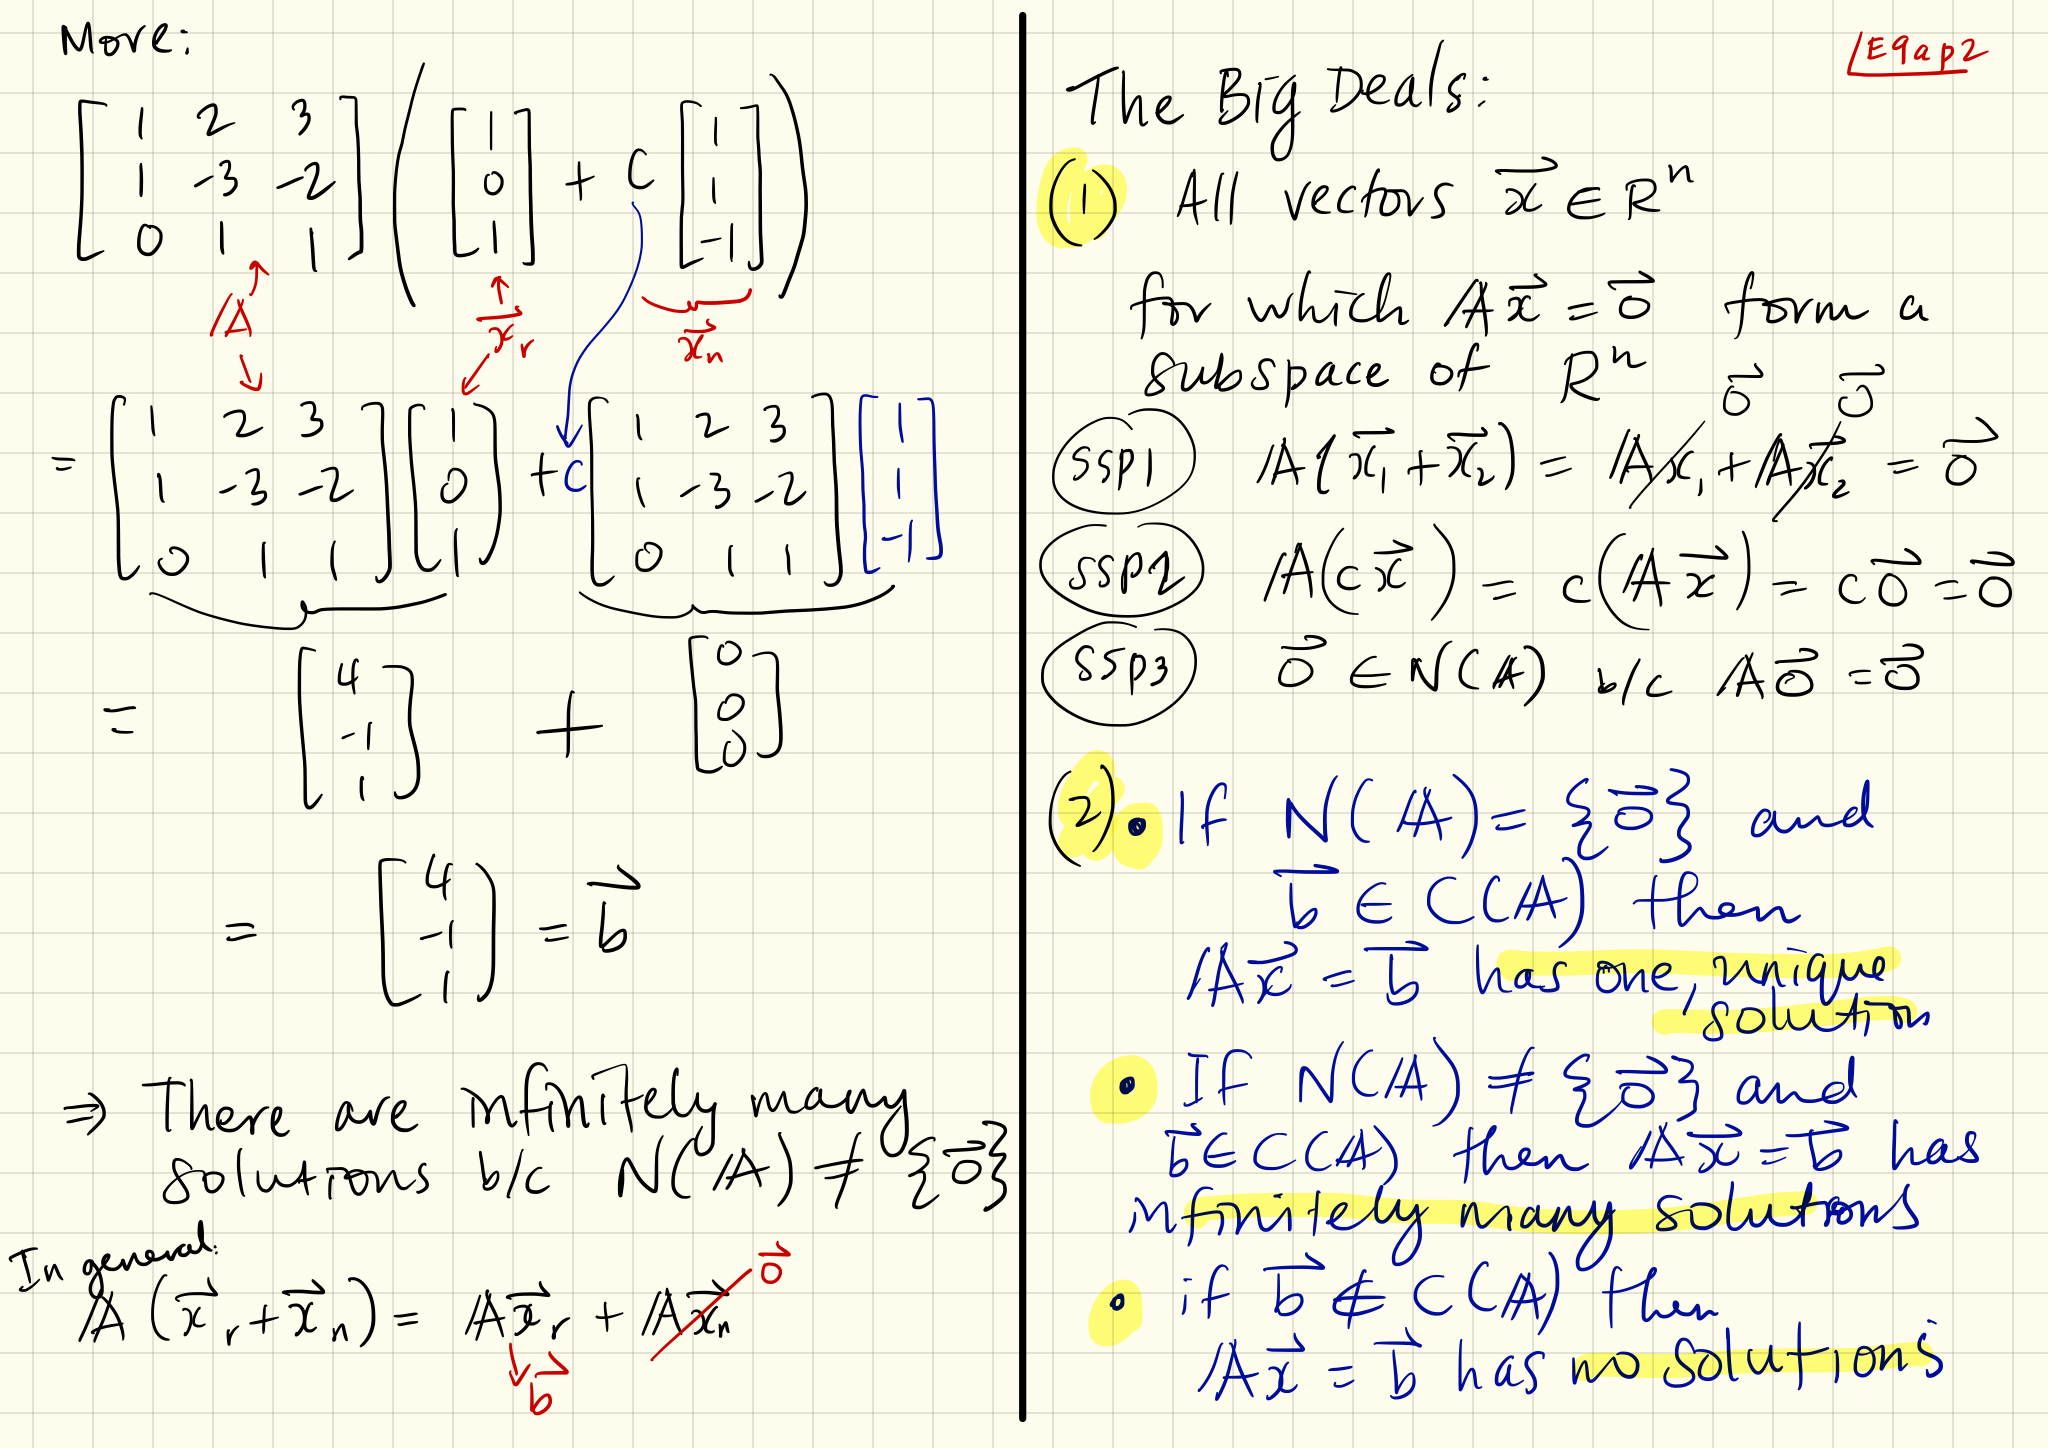 More:
[ 1 2 3 ; 1 -3 -2 ; 0 1 1 ] ( [ 1 ; 0 ; 1 ] + C [ 1 ; 1 ; -1 ] )
A x⃗r x⃗n
= [ 1 2 3 ; 1 -3 -2 ; 0 1 1 ] [ 1 ; 0 ; 1 ] + C [ 1 2 3 ; 1 -3 -2 ; 0 1 1 ] [ 1 ; 1 ; -1 ]
= [ 4 ; -1 ; 1 ] + [ 0 ; 0 ; 0 ]
= [ 4 ; -1 ; 1 ] = b⃗
⇒ There are infinitely many
solutions b/c N(A) ≠ {0⃗}
In general:
A (x⃗r + x⃗n) = Ax⃗r + Ax⃗n 0⃗
b⃗
E9ap2
The Big Deals:
(1) All vectors x⃗ ∈ Rⁿ
for which Ax⃗ = 0⃗ form a
subspace of Rⁿ
0⃗ 0⃗
SSP1 A(x⃗1 + x⃗2) = Ax⃗1 + Ax⃗2 = 0⃗
SSP2 A(cx⃗) = c(Ax⃗) = c0⃗ = 0⃗
SSP3 0⃗ ∈ N(A) b/c A0⃗ = 0⃗
(2) • If N(A) = {0⃗} and
b⃗ ∈ C(A) then
Ax⃗ = b⃗ has one, unique
solution
• If N(A) ≠ {0⃗} and
b⃗ ∈ C(A) then Ax⃗ = b⃗ has
infinitely many solutions
• if b⃗ ∉ C(A) then
Ax⃗ = b⃗ has no solutions